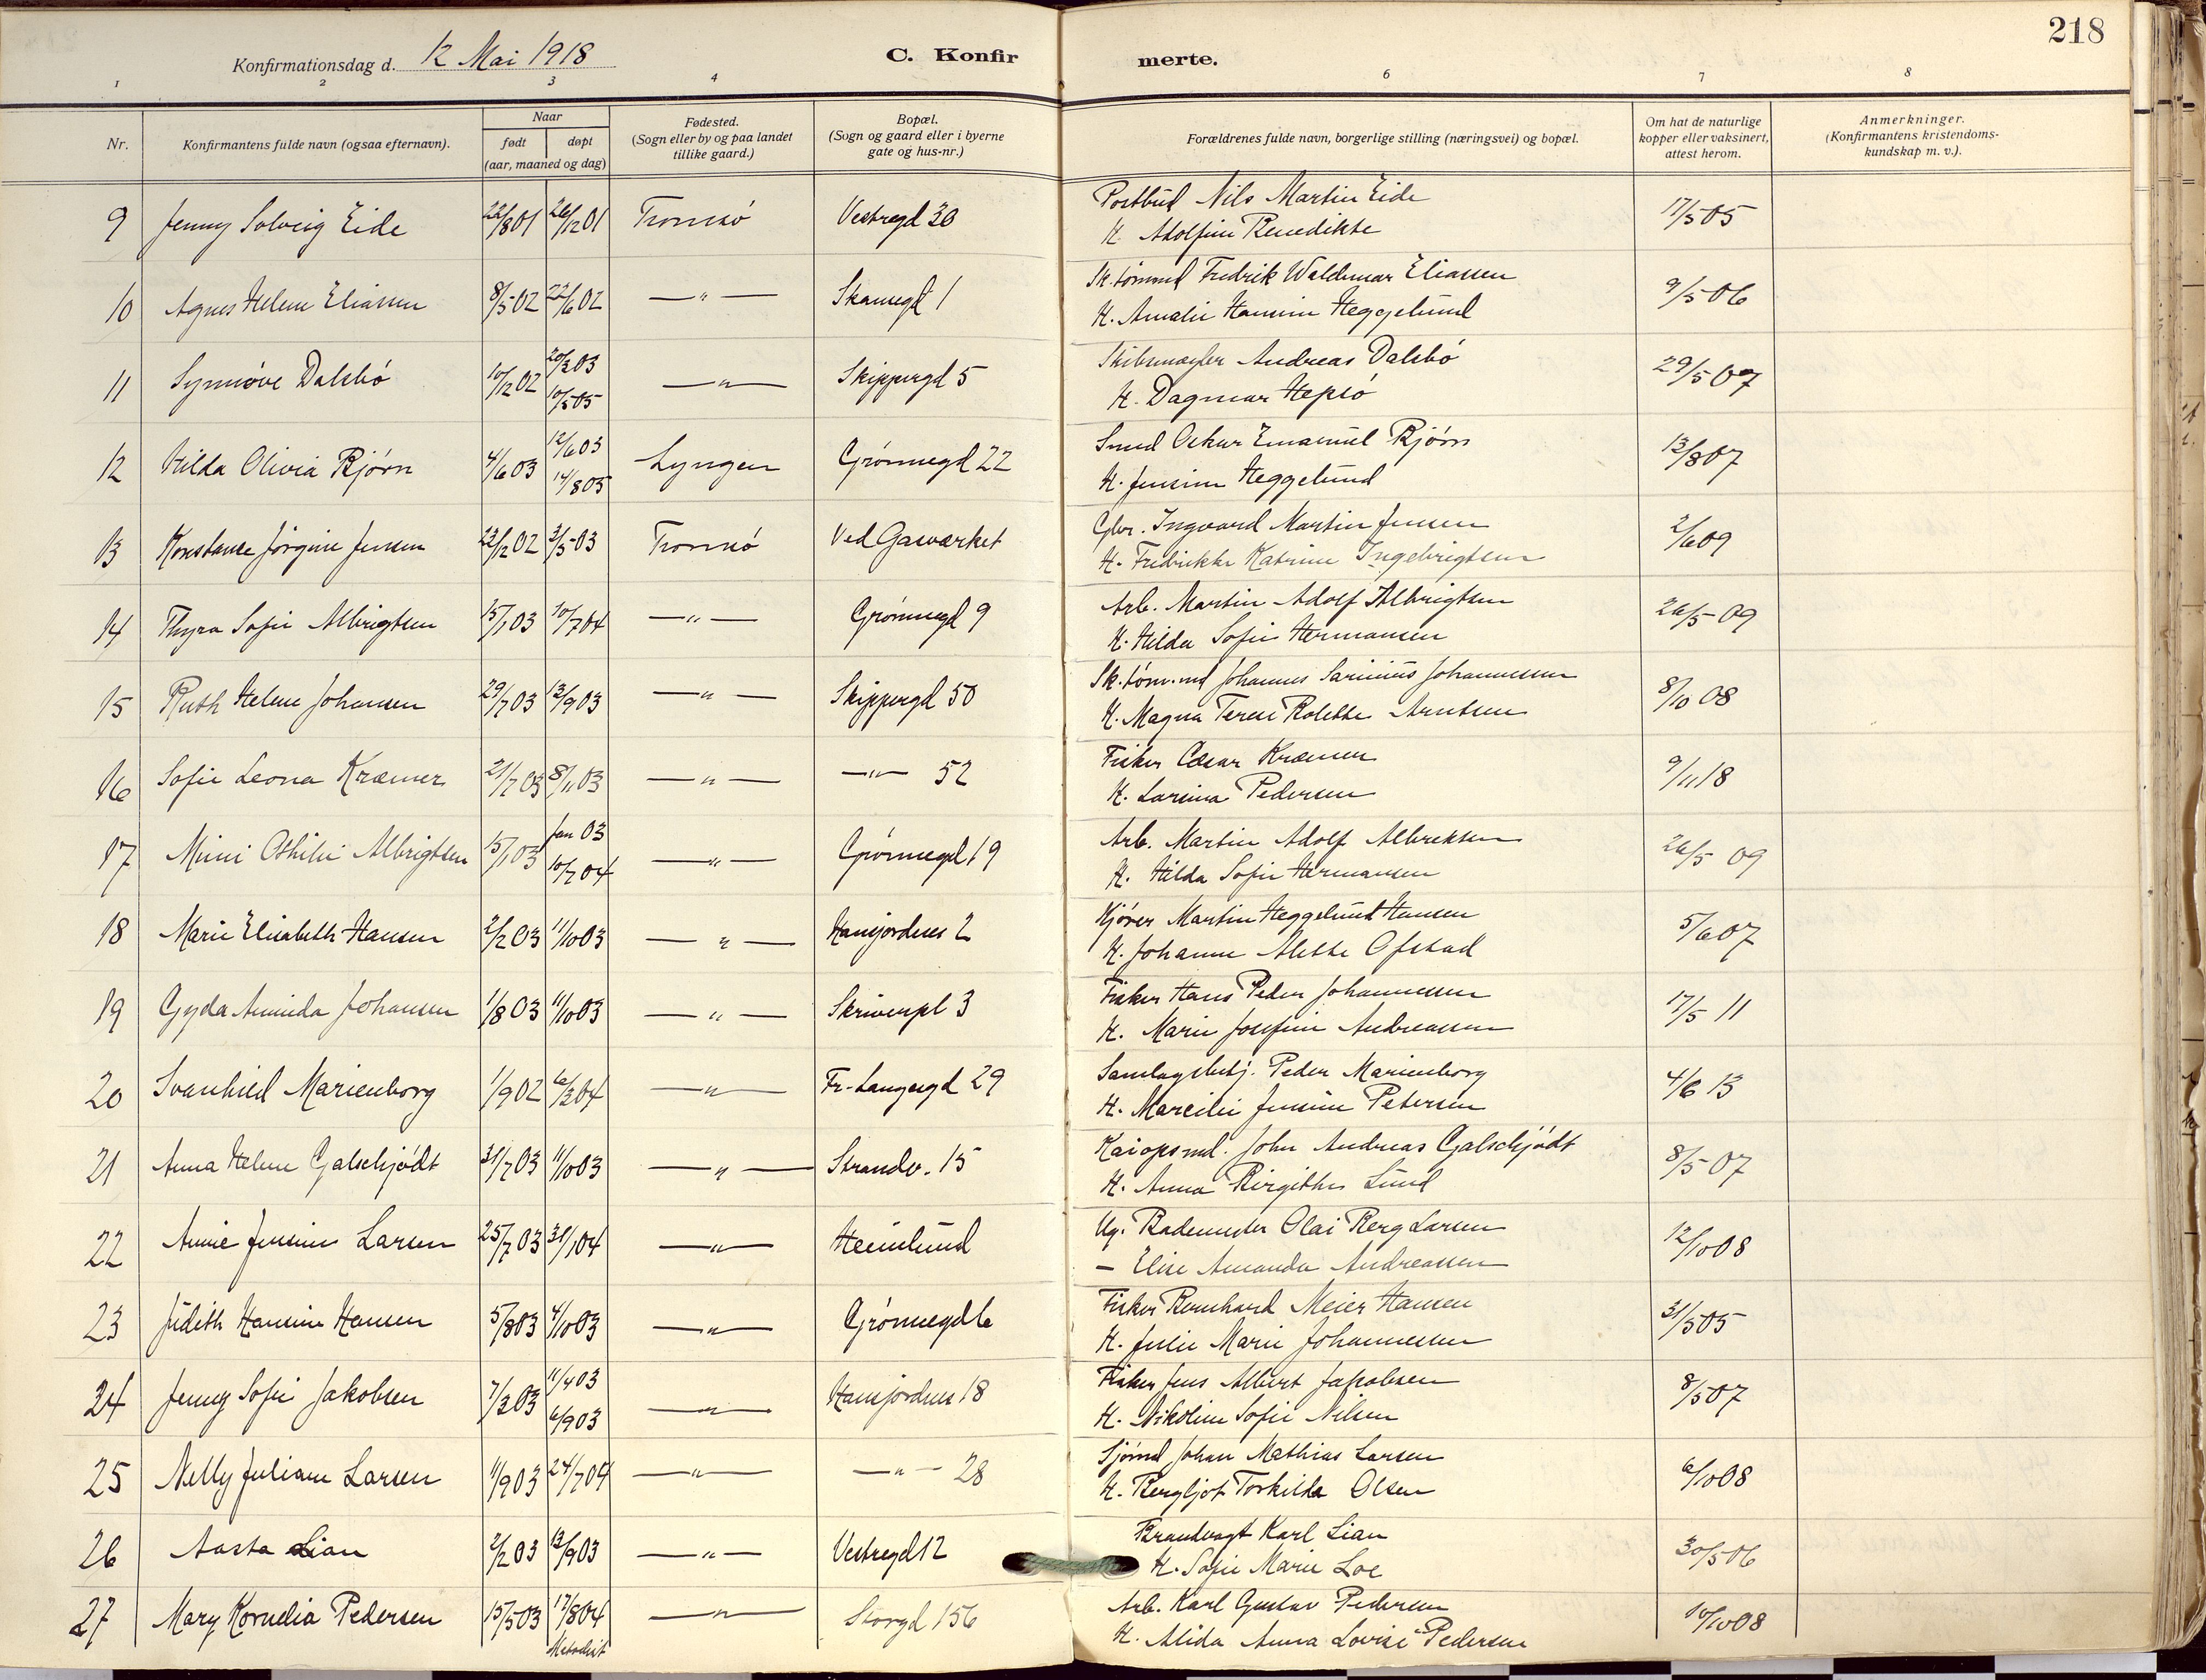 218
Konfirmationsdag d. 12 Mai 1918
C. Konfir merte.
1 2 3 4 6 7 8
Nr.
Konfirmantens fulde navn (ogsaa efternavn).
Naar
født døpt
(aar, maaned og dag)
Fødested.
(Sogn eller by og paa landet
tillike gaard.)
Bopæl.
(Sogn og gaard eller i byerne
gate og hus-nr.)
Forældrenes fulde navn, borgerlige stilling (næringsvei) og bopæl.
Om hat de naturlige
kopper eller vaksinert,
attest herom.
Anmerkninger.
(Konfirmantens kristendoms-
kundskap m. v.).
9 Jenny Solveig Eide 22/8 01 26/12 01 Tromsø Vestregd 30 Postbud Nils Martin Eide 17/5 05
H. Adolfine Benedikte
10 Agnes Helene Eliassen 8/5 02 22/6 02 —"— Skansegt 1 Sk.tømmd Fredrik Waldemar Eliassen 9/5 06
H. Amalie Hansine Heggelund
11 Synnøve Dalsbø 10/12 02 20/3 03 10/5 05 —"— Skippergd 5 Andreas Dalsbø 29/5 07
H. Dagmar Hepsø
12 Hilda Olivia Bjørn 4/6 03 12/6 03 14/8 05 Lyngen Grønnegd 22 Smed Oskar Emanuel Bjørn 13/8 07
H. Jensine Heggelund
13 Konstanse Jørgine Jensen 23/12 02 3/5 03 Tromsø Ved Gasværket Ingvard Martin Jensen 2/6 09
H. Fredrikke Katrine Ingebrigtsen
14 Thyra Sofie Albrigtsen 15/1 03 10/7 04 —"— Grønnegd 9 Arb. Martin Adolf Albrigtsen 26/5 09
H. Hilda Sofie Hermansen
15 Ruth Helene Johansen 29/7 03 13/9 03 —"— Skippergd 50 Sk.tøm.md Johannes Johannessen 8/10 08
H. Magna Terese Rolette Arntsen
16 Sofie Leona Kræmer 21/7 03 8/11 03 —"— —"— 52 Fisker Cæsar Kræmer 9/11 18
H. Larsina Pedersen
17 Mimi Othilie Albrigtsen 15/1 03 Jan 03 10/7 04 —"— Grønnegd 19 Arb. Martin Adolf Albreksen 26/5 09
H. Hilda Sofie Hermansen
18 Marie Elisabeth Hansen 2/2 03 11/10 03 —"— Hansjordnes 2 Kjører Martin Heggelund Hansen 5/6 07
H. Johanne Alette Ofstad
19 Gyda Aminda Johansen 1/8 03 11/10 03 —"— Skriverpl 3 Fisker Hans Peder Johannessen 17/5 11
H. Marie Josefine Andreassen
20 Svanhild Marienborg 1/9 02 6/3 04 —"— Fr. Langesgd 29 Samlagsbetj. Peder Marienborg 4/6 13
H. Marcilie Jensine Petersen
21 Anna Helene Galschjødt 31/7 03 11/10 03 —"— Strandv. 15 Kaiopsmd. John Andreas Galschjødt 8/5 07
H. Anna Birgithe Lund
22 Annie Jensine Larsen 25/7 03 31/1 04 —"— Heimlund Ug. Bademester Olai Berg Larsen 12/10 08
— Elise Amanda Andreassen
23 Judith Hansine Hansen 5/8 03 4/10 03 —"— Grønnegd 6 Fisker Bernhard Meier Hansen 31/5 05
H. Julie Marie Johannessen
24 Jenny Sofie Jakobsen 7/3 03 11/4 03 6/9 03 —"— Hansjordnes 18 Fisker Jens Albert Jakobsen 8/5 07
H. Nikoline Sofie Nilsen
25 Nelly Juliane Larsen 11/9 03 24/7 04 —"— —"— 28 Sjømd Johan Mathias Larsen 6/10 08
H. Bergljot Torkilda Olsen
26 Aasta Lian 2/2 03 13/9 03 —"— Vestregd 12 Brandvagt Karl Lian 30/5 06
H. Sofie Marie Loe
27 Mary Kornelia Pedersen 15/5 03 17/8 04 —"— Storgd 156 Arb. Karl Gustav Pedersen 10/10 08
Metodist H. Alida Anna Lovise Pedersen